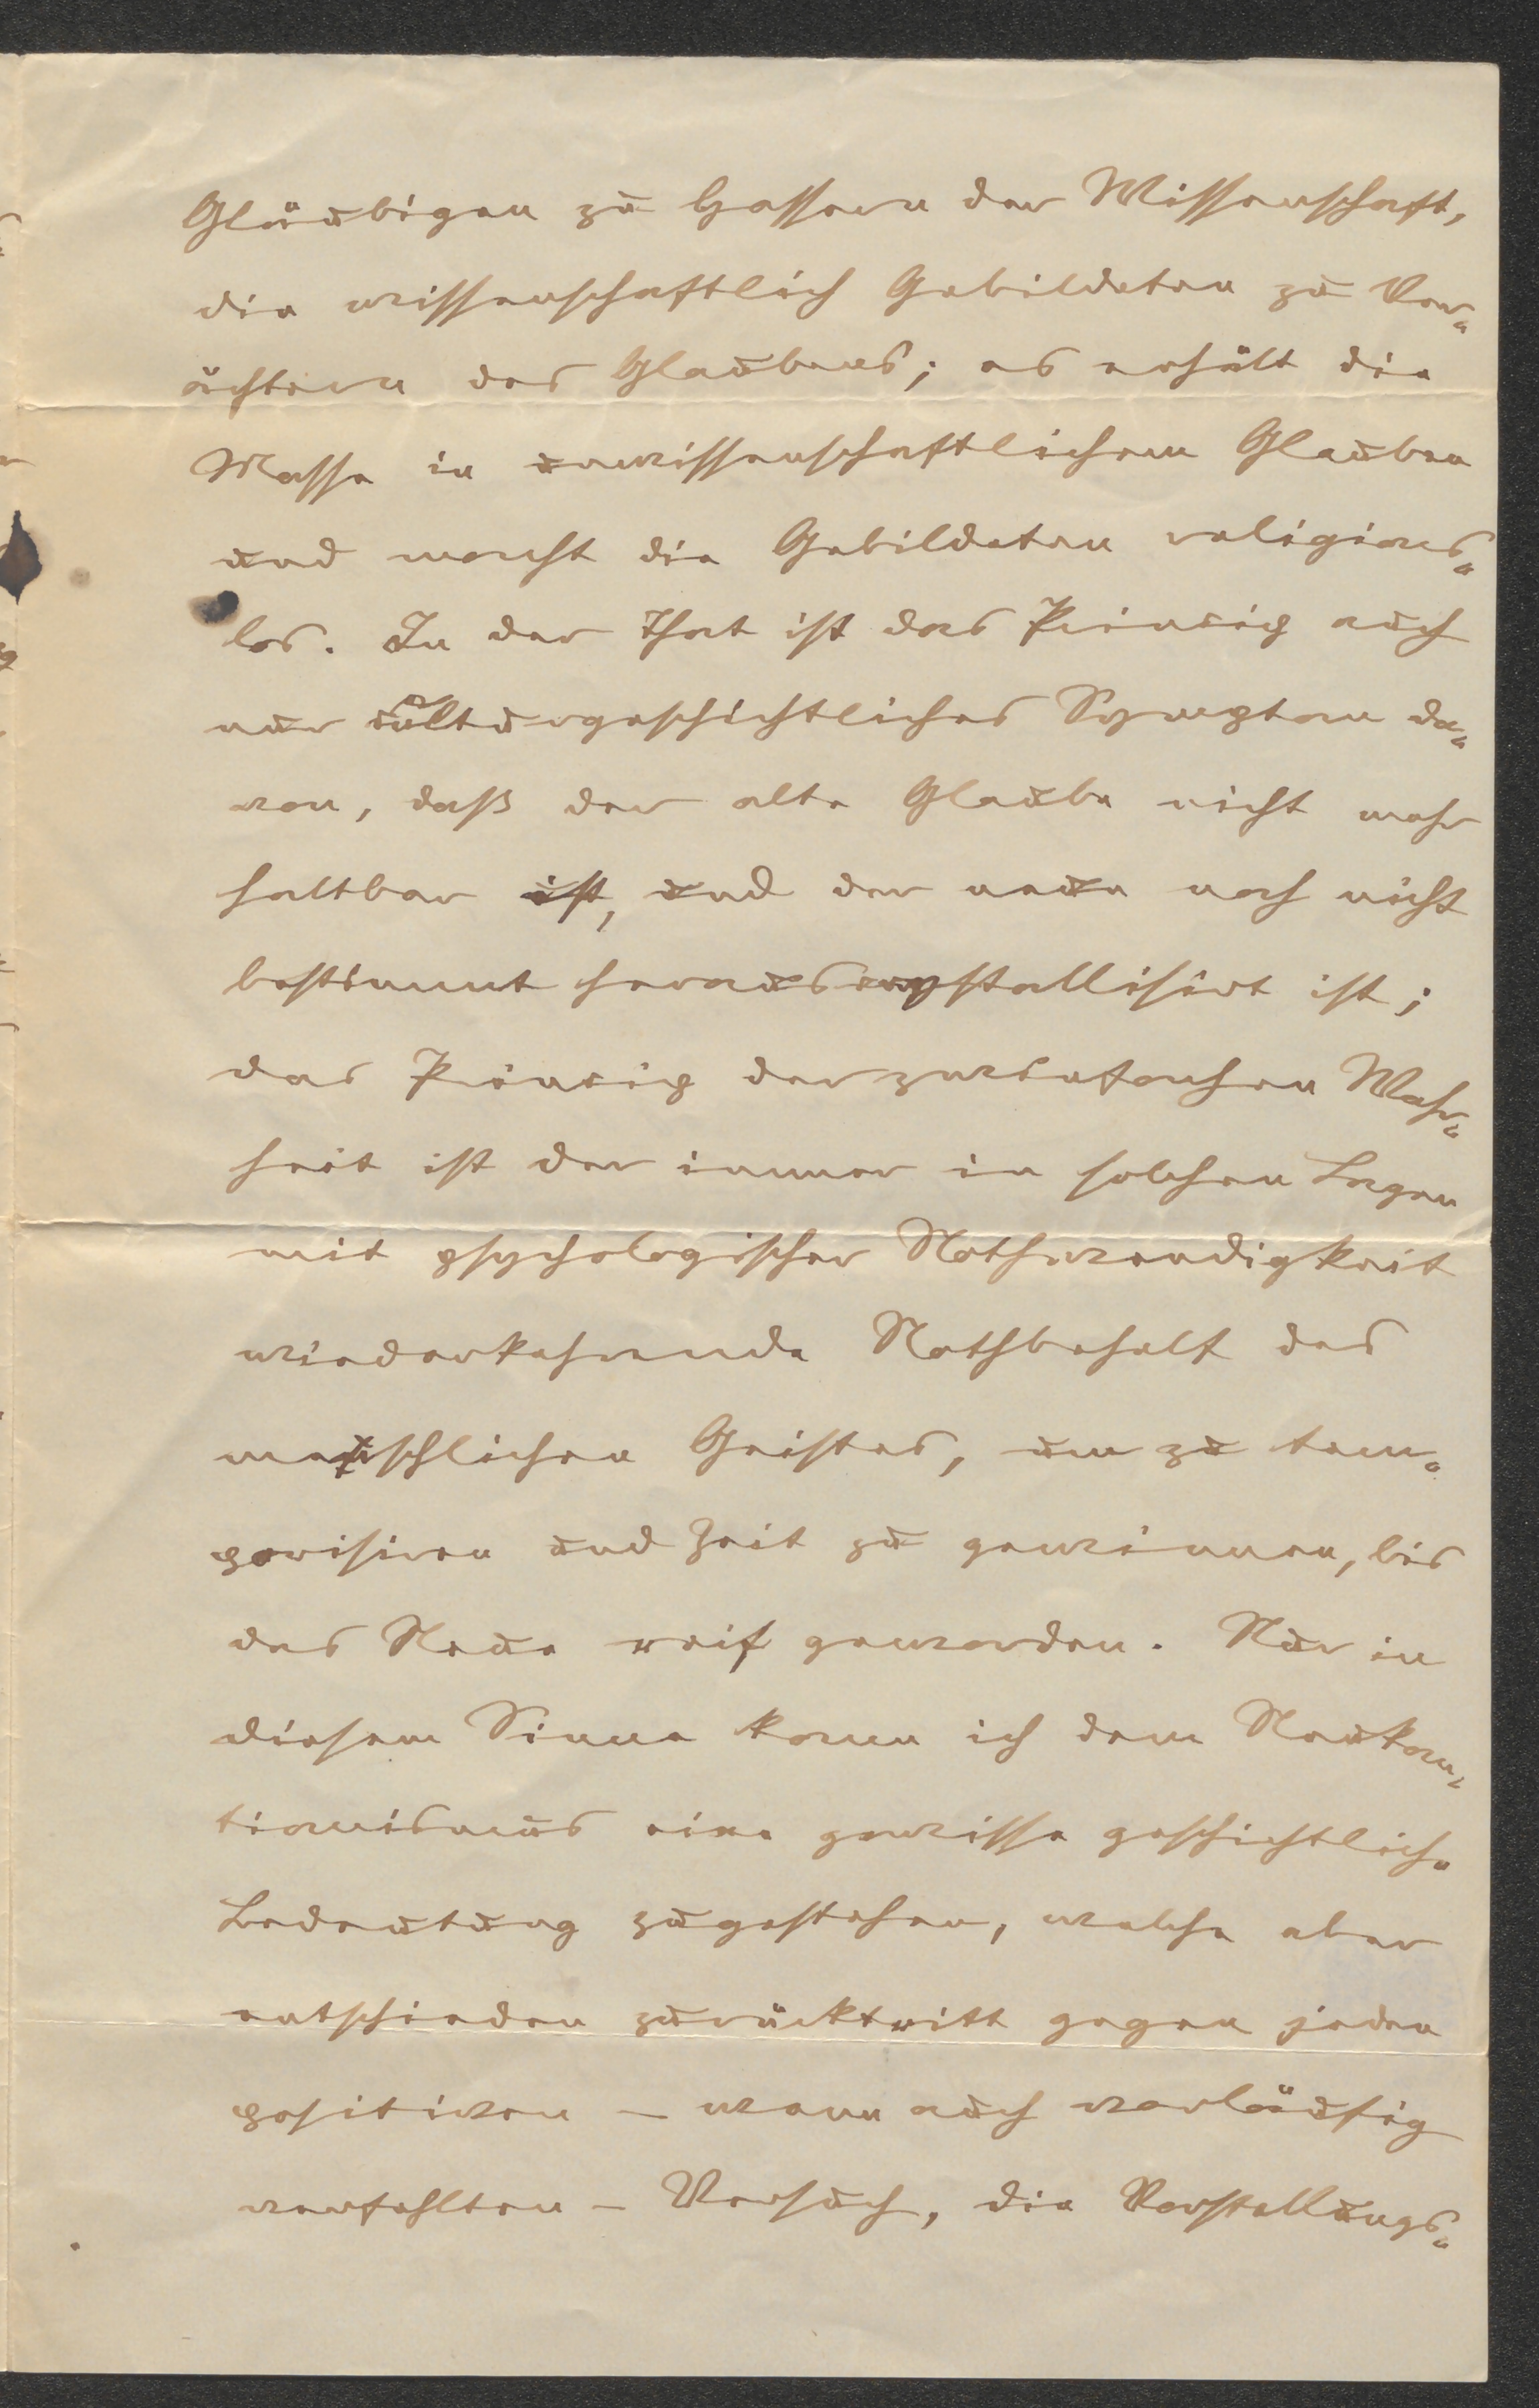 Gläubigen zu Hassern der Wissenschaft,
die wissenschaftlich Gebildeten zu Ver-
ächtern des Glaubens; es erhält die
Masse in unwissenschaftlichem Glauben
und macht die Gebildeten religions-
los. In der That ist das Princip auch
nur culturgeschichtliches Symptom da-
von, daß der alte Glaube nicht mehr
haltbar ist, und der neue noch nicht
bestimmt herauscrystallisirt ist;
das Princip der zweifachen Wahr-
heit ist der immer in solchen Lagen
mit psychologischer Nothwendigkeit
wiederkehrende Nothbehelf des
menschlichen Geistes, um zu tem-
porisiren und Zeit zu gewinnen, bis
das Neue reif geworden. Nur in
diesem Sinne kann ich dem Neukan-
tianismus eine gewisse geschichtliche
Bedeutung zugestehen, welche aber
entschieden zurücktritt gegen jeden
positiven – wenn auch vorläufig
verfehlten – Versuch, die Vorstellungs-